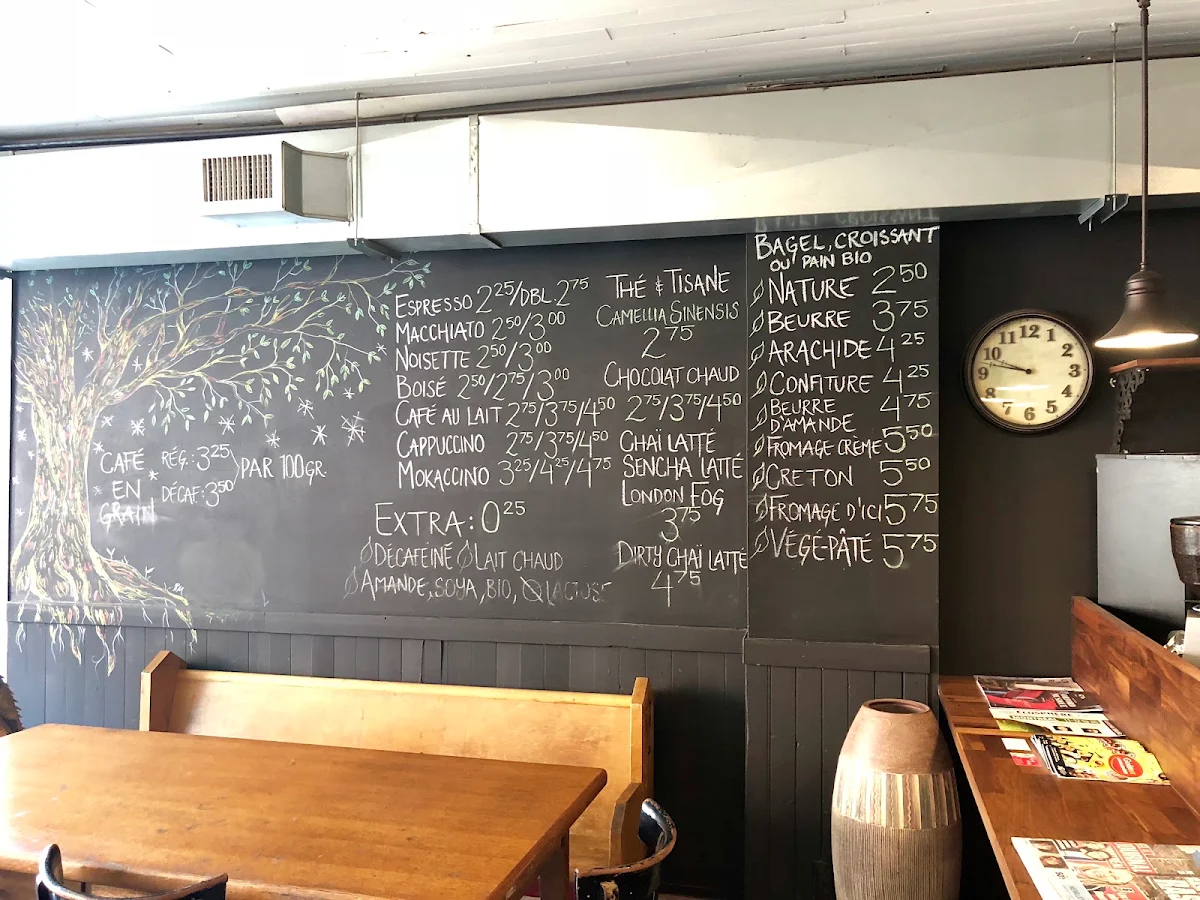 CAFÉ
EN
GRAIN
RÉG.: 3.25
DÉCAF: 3.50
PAR 100GR.
ESPRESSO 2.25/DBL. 2.75
MACCHIATO 2.50/3.00
NOISETTE 2.50/3.00
BOISÉ 2.50/2.75/3.00
CAFÉ AU LAIT 2.75/3.75/4.50
CAPPUCCINO 2.75/3.75/4.50
MOKACCINO 3.25/4.25/4.75
EXTRA: 0.25
DÉCAFÉINÉ LAIT CHAUD
AMANDE, SOYA, BIO, LACTOSE
THÉ & TISANE
CAMELLIA SINENSIS
2.75
CHOCOLAT CHAUD
2.75/3.75/4.50
CHAÏ LATTÉ
SENCHA LATTÉ
LONDON FOG
3.75
DIRTY CHAÏ LATTÉ
4.75
BAGEL, CROISSANT
OU PAIN BIO
NATURE 2.50
BEURRE 3.75
ARACHIDE 4.25
CONFITURE 4.25
BEURRE
D'AMANDE 4.75
FROMAGE CRÈME 5.50
CRETON 5.50
FROMAGE D'ICI 5.75
VÉGÉ-PÂTÉ 5.75
11 12 1
10 2
9 3
8 4
7 6 5
ÉCOSPHÈRE
MONTRÉAL